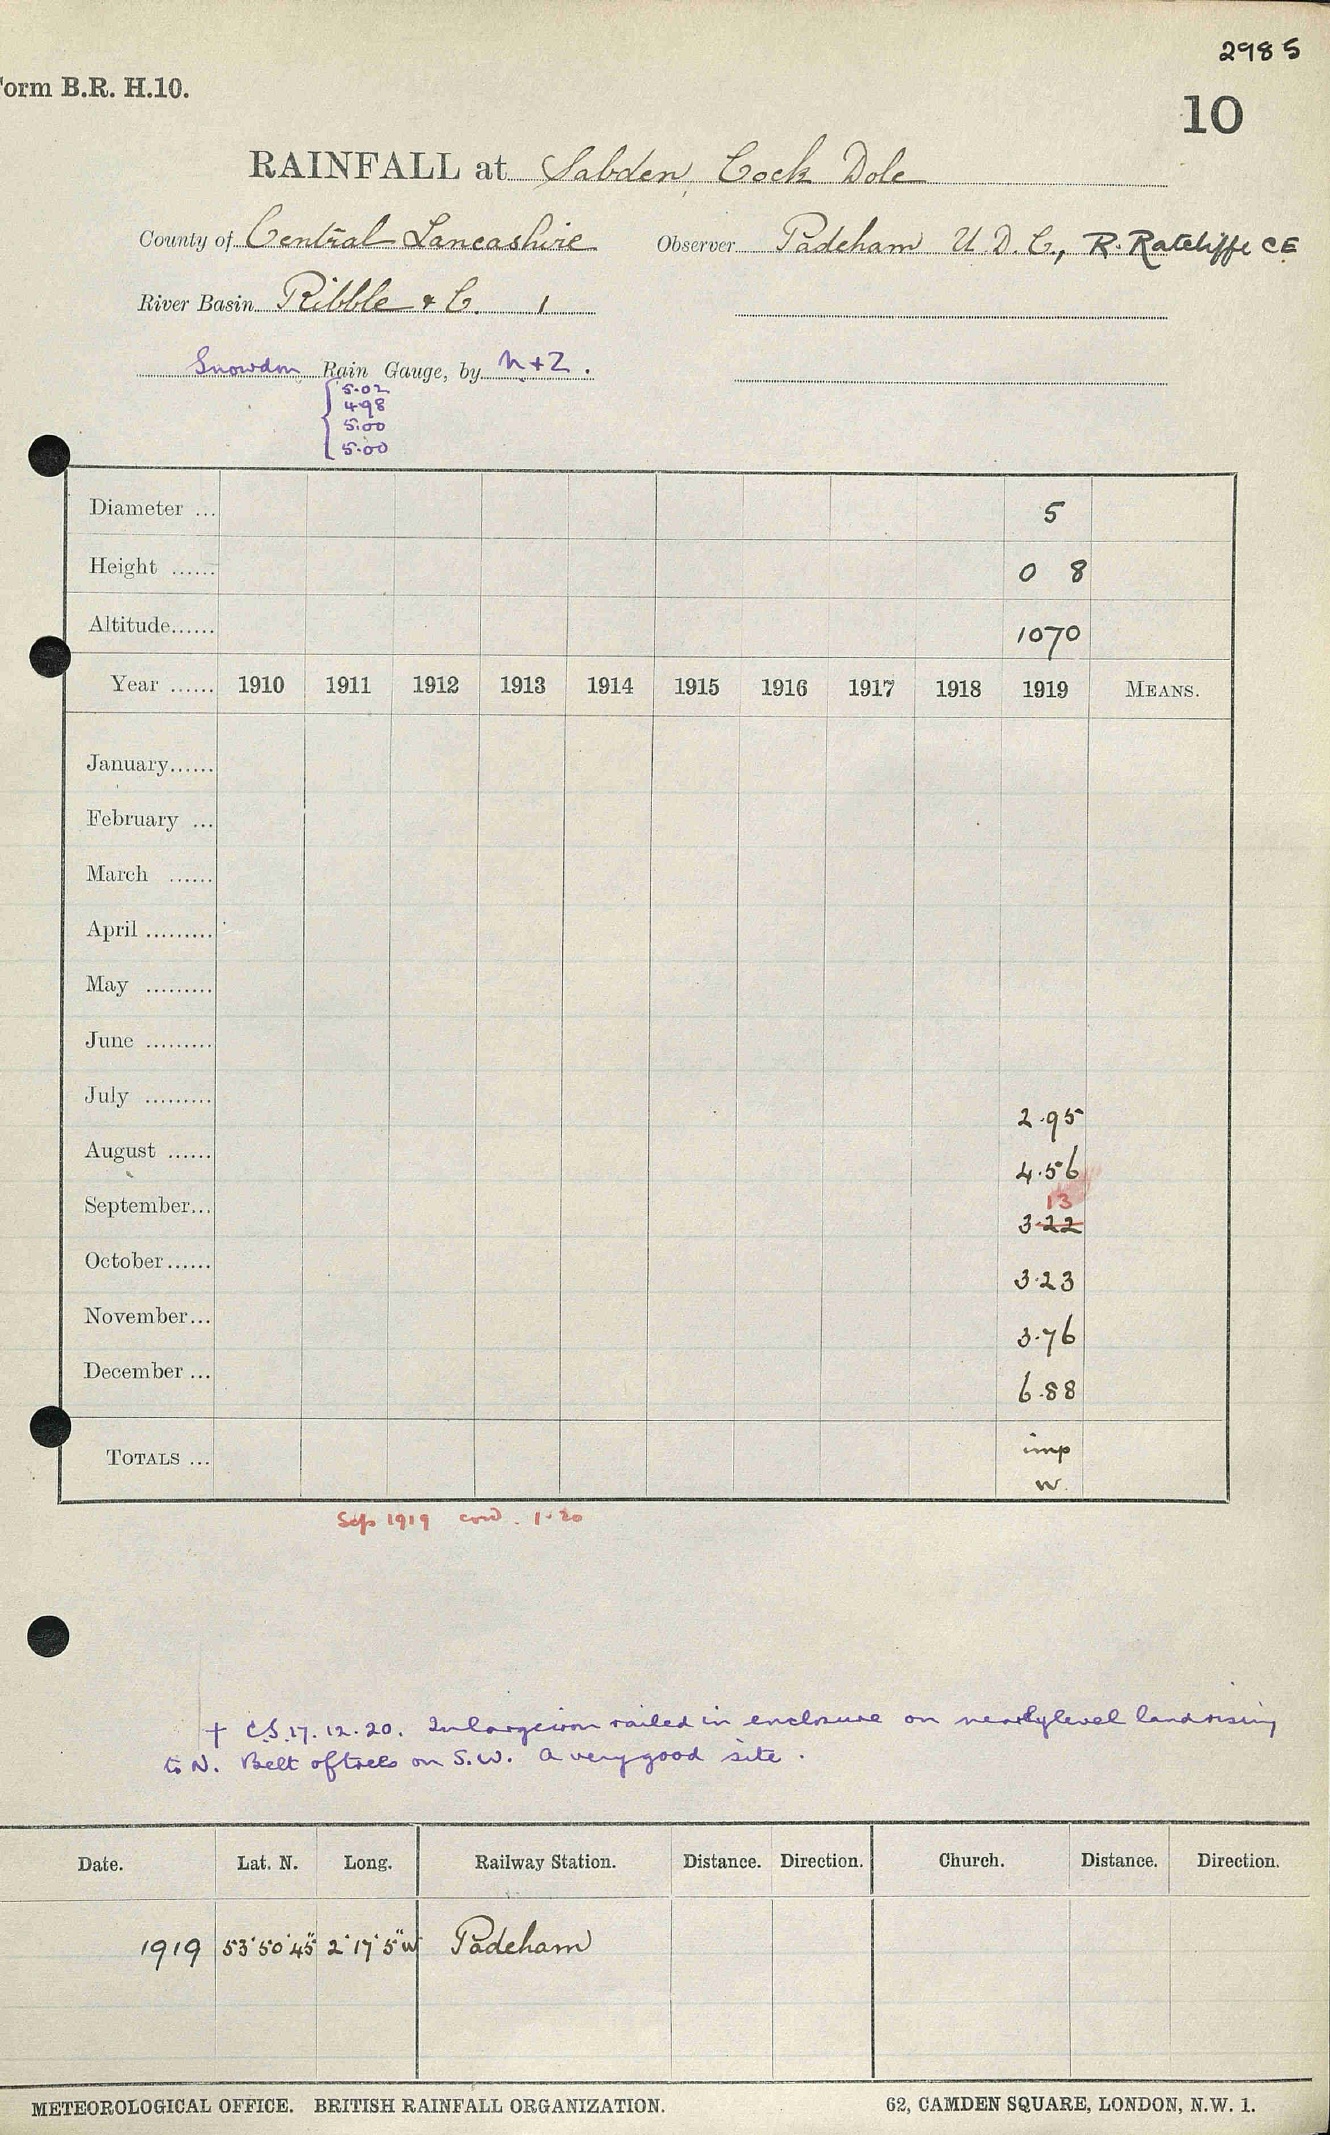 2985
Form B.R. H.10.
10
RAINFALL at Sabden, Cock Dole
County of Central Lancashire Observer Padeham U.D.C., R. Ratcliffe CE
River Basin Ribble & C. 1
Snowdon Rain Gauge, by N+Z.
5.02
4.98
5.00
5.00
Diameter ... 5
Height ...... 0 8
Altitude...... 1070
Year ...... 1910 1911 1912 1913 1914 1915 1916 1917 1918 1919 MEANS.
January......
February ...
March ......
April .........
May .........
June .........
July ......... 2.95
August ...... 4.56
13
September... 3.22
October...... 3.23
November... 3.76
December ... 6.88
TOTALS ... imp
w.
Sep 1919 cord. 1.20
+ C.S. 17.12.20. In large iron railed in enclosure on nearly level land rising
to N. Belt of trees on S.W. A very good site.
Date. Lat. N. Long. Railway Station. Distance. Direction. Church. Distance. Direction.
1919 53°50'45" 2°17'5"W Padeham
METEOROLOGICAL OFFICE. BRITISH RAINFALL ORGANIZATION. 62, CAMDEN SQUARE, LONDON, N.W. 1.